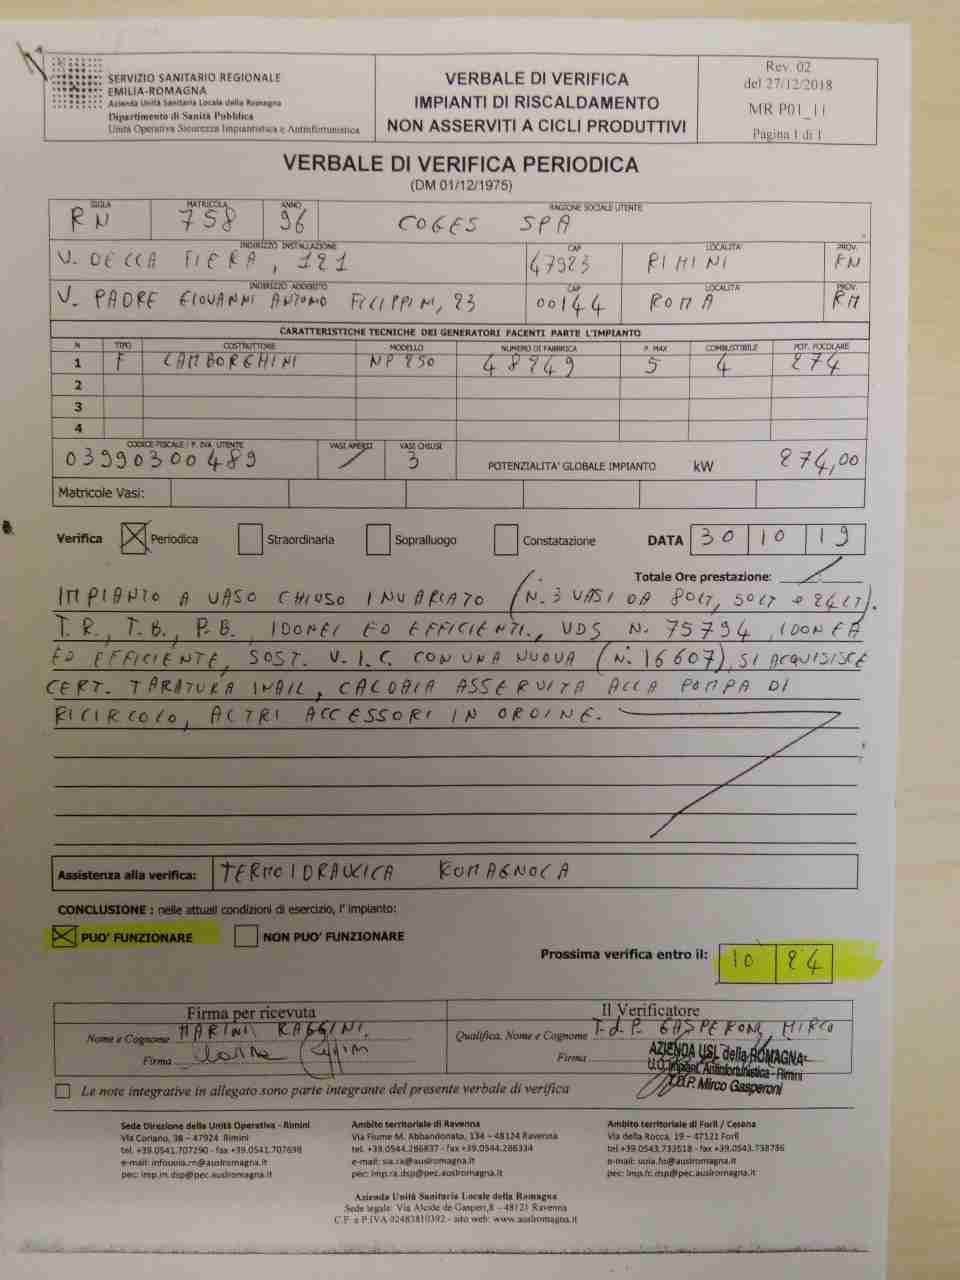 SERVIZIO SANITARIO REGIONALE
EMILIA-ROMAGNA
Azienda Unità Sanitaria Locale della Romagna
Dipartimento di Sanità Pubblica
Unità Operativa Sicurezza Impiantistica e Antinfortunistica
VERBALE DI VERIFICA
IMPIANTI DI RISCALDAMENTO
NON ASSERVITI A CICLI PRODUTTIVI
Rev. 02
del 27/12/2018
MR P01_11
Pagina 1 di 1
VERBALE DI VERIFICA PERIODICA
(DM 01/12/1975)
SIGLA MATRICOLA ANNO RAGIONE SOCIALE UTENTE
RN 758 96 COGES SPA
INDIRIZZO INSTALLAZIONE CAP LOCALITA' PROV.
V. DELLA FIERA, 121 47923 RIMINI RN
INDIRIZZO ADDEBITO CAP LOCALITA' PROV.
V. PADRE GIOVANNI ANTONIO FILIPPINI, 23 00144 ROMA RM
CARATTERISTICHE TECNICHE DEI GENERATORI FACENTI PARTE L'IMPIANTO
N TIPO COSTRUTTORE MODELLO NUMERO DI FABBRICA P. MAX COMBUSTIBILE POT. FOCOLARE
1 F LAMBORGHINI NP 250 48249 5 4 274
2
3
4
CODICE FISCALE / P. IVA UTENTE VASI APERTI VASI CHIUSI
03990300489 / 3 POTENZIALITA' GLOBALE IMPIANTO kW 274,00
Matricole Vasi:
Verifica Periodica Straordinaria Sopralluogo Constatazione DATA 30 10 19
Totale Ore prestazione:
IMPIANTO A VASO CHIUSO INVARIATO (N. 3 VASI DA 80LT, 50LT e 24LT).
T.R., T.B., P.B., IDONEI ED EFFICIENTI., VDS N. 75794, IDONEA
ED EFFICIENTE, SOST. V.I.C. CON UNA NUOVA (N. 16607), SI ACQUISISCE
CERT. TARATURA INAIL, CALDAIA ASSERVITA ALLA POMPA DI
RICIRCOLO, ALTRI ACCESSORI IN ORDINE.
Assistenza alla verifica: TERMOIDRAULICA ROMAGNOLA
CONCLUSIONE : nelle attuali condizioni di esercizio, l' impianto:
PUO' FUNZIONARE NON PUO' FUNZIONARE
Prossima verifica entro il: 10 24
Firma per ricevuta
Nome e Cognome MARINI RAGGINI
Firma
Il Verificatore
Qualifica, Nome e Cognome T.d.P. GASPERONI MIRCO
Firma
AZIENDA USL della ROMAGNA
U.O. Impiant. Antinfortunistica - Rimini
T.D.P. Mirco Gasperoni
Le note integrative in allegato sono parte integrante del presente verbale di verifica
Sede Direzione della Unità Operativa - Rimini
Via Coriano, 38 – 47924 Rimini
tel. +39.0541.707290 - fax +39.0541.707698
e-mail: infouoia.rn@auslromagna.it
pec: imp.rn.dsp@pec.auslromagna.it
Ambito territoriale di Ravenna
Via Fiume M. Abbandonato, 134 – 48124 Ravenna
tel. +39.0544.286837 - fax +39.0544.286334
e-mail: sia.ra@auslromagna.it
pec: imp.ra.dsp@pec.auslromagna.it
Ambito territoriale di Forlì / Cesena
Via della Rocca, 19 – 47121 Forlì
tel +39.0543.733518 - fax +39.0543.738786
e-mail: uoia.fo@auslromagna.it
pec: imp.fc.dsp@pec.auslromagna.it
Azienda Unità Sanitaria Locale della Romagna
Sede legale: Via Alcide de Gasperi,8 – 48121 Ravenna
C.F. e P.IVA 02483810392 - sito web: www.auslromagna.it